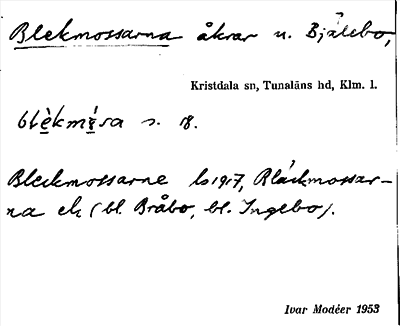 Blekmossarna åkrar u. Bjälebo,
Kristdala sn, Tunaläns hd, Klm. l.
s. 18.
Bleckmossarne ls 1917, Bläckmossar-
na ek (bl. Bråbo, bl. Ingebo).
Ivar Modéer 1953